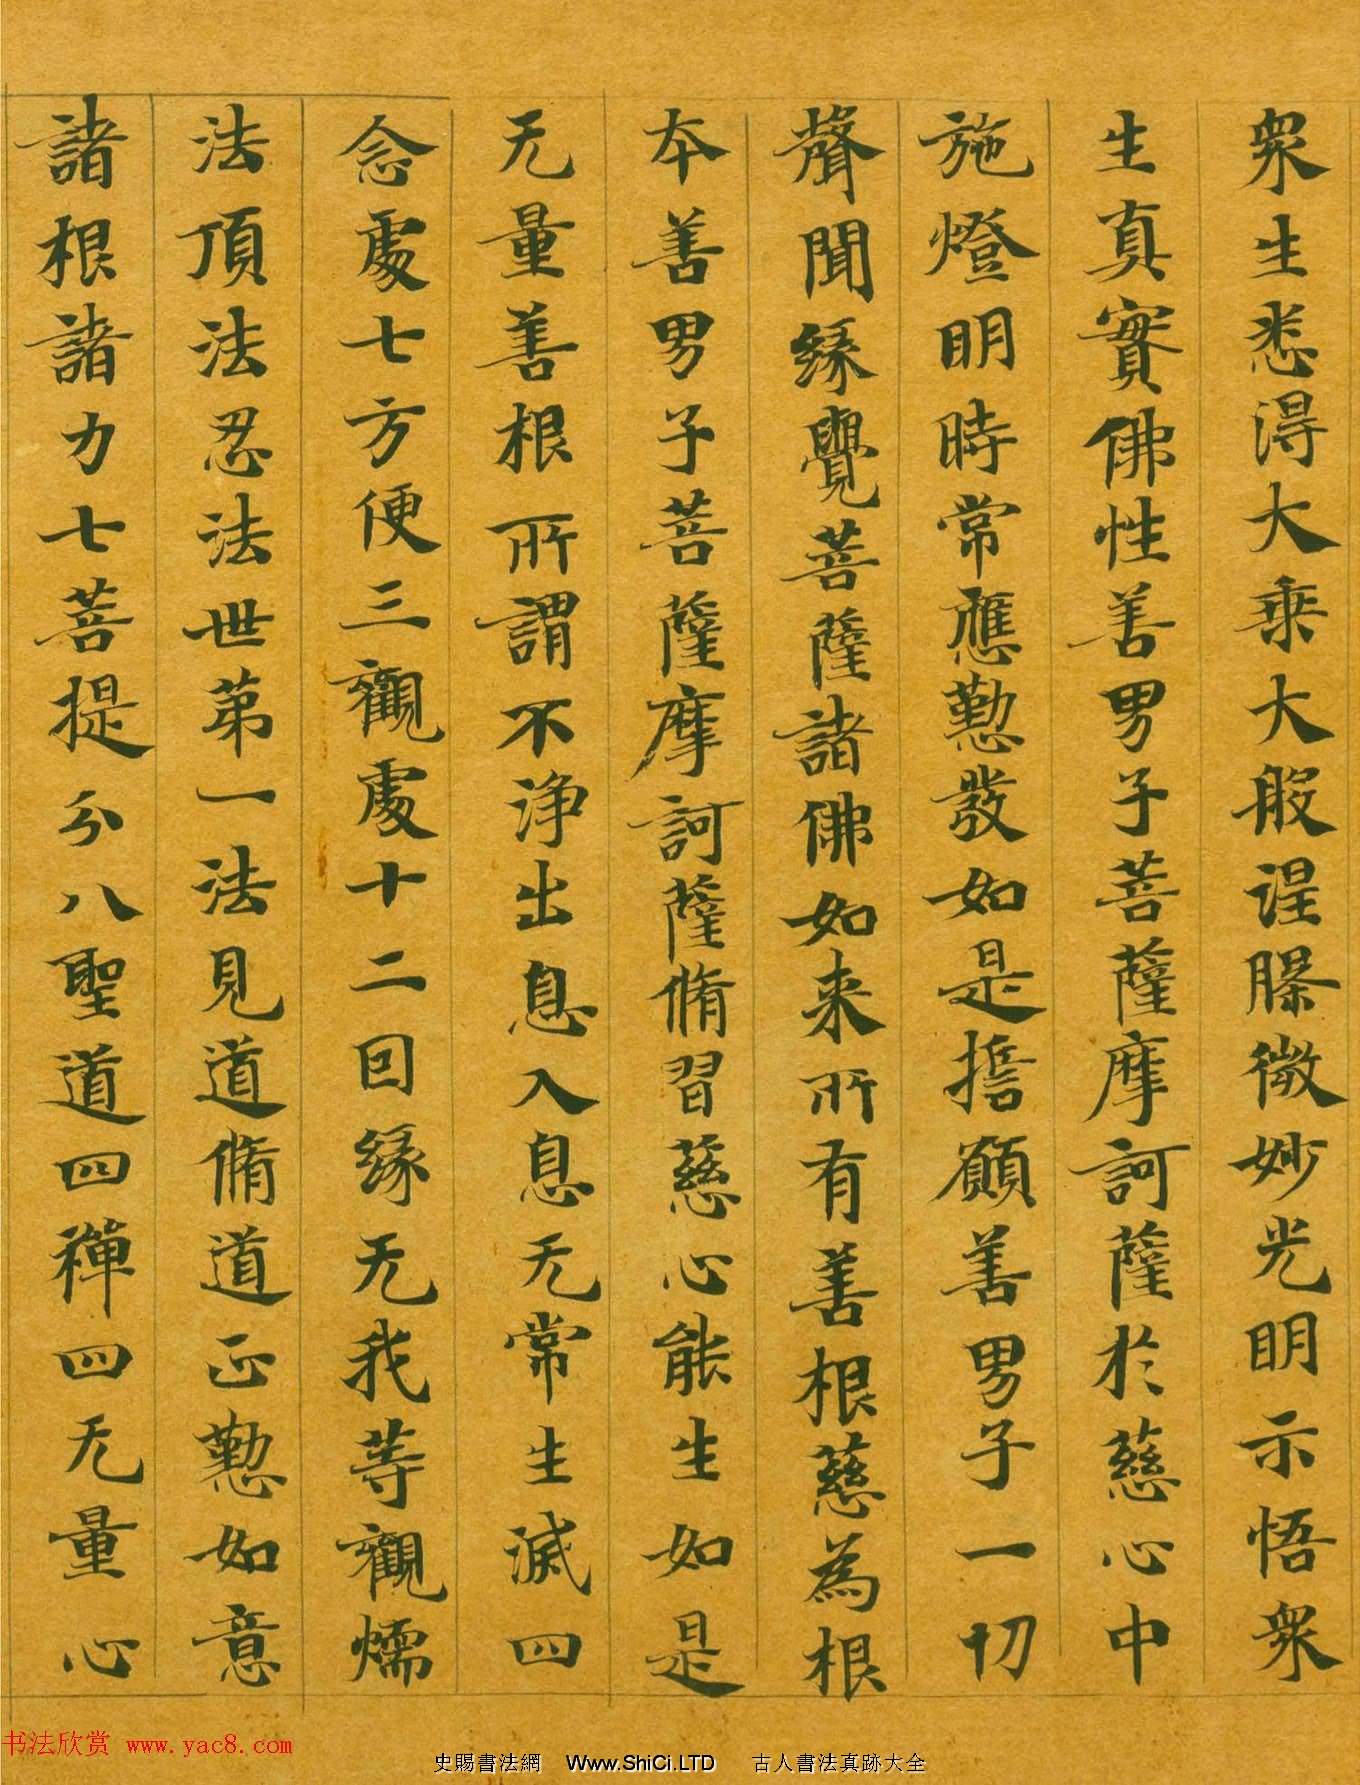 衆生悉得大乘大般涅槃微妙光明示悟衆
生真實佛性善男子菩薩摩訶薩於慈心中
施燈明時常應懃發如是擔願善男子一切
聲聞緣覺菩薩諸佛如来所有善根慈為根
本善男子菩薩摩訶薩脩習慈心能生如是
无量善根所謂不淨出息入息无常生滅四
念處七方便三觀處十二因緣无我等觀燸
法頂法忍法世弟一法見道脩道正懃如意
諸根諸力七菩提分八聖道四禪四无量心
书法欣赏 www.yac8.com
史賜書法網 Www.ShiCi.LTD 古人書法真跡大全